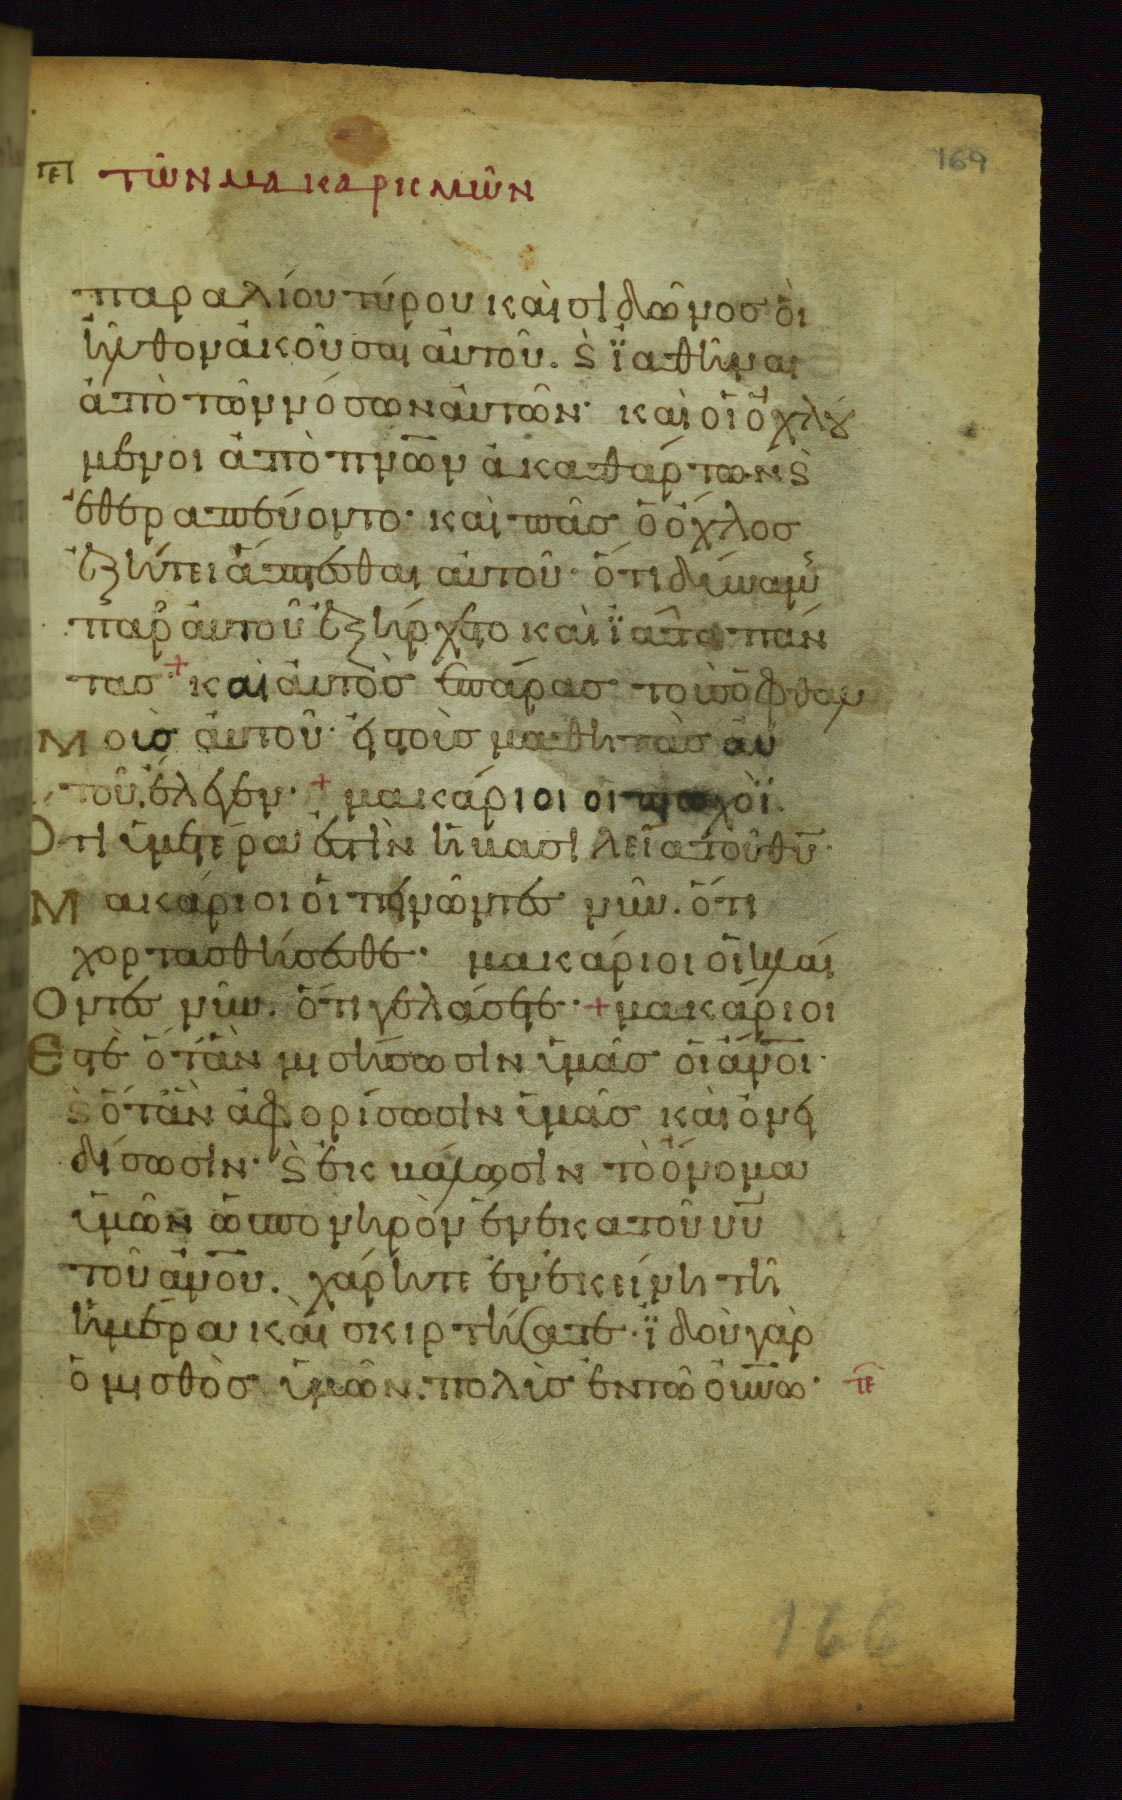 169
πε τῶν μακαρισμῶν
παραλίου τύρου καὶ σιδῶνος· οἳ
ἦλθον ἀκοῦσαι αὐτοῦ. ϗ ἰαθῆναι
ἀπὸ τῶν νόσων αὐτῶν· καὶ οἱ ὀχλού
μενοι ἀπὸ πν̅ω̅ν ἀκαθάρτων ϗ
ἐθεραπεύοντο· καὶ πᾶς ὁ ὄχλος
ἐζήτει ἅπτεσθαι αὐτοῦ· ὅτι δύναμις
παρ' αὐτοῦ ἐξήρχετο καὶ ἰᾶτο πάν
τας + καὶ αὐτὸς ἐπάρας τοὺς ὀφθαλ
μοὺς αὐτοῦ· εἰς τοὺς μαθητὰς αὐ
τοῦ. ἔλεγεν· + μακάριοι οἱ πτωχοὶ.
Ὅτι ὑμετέρα ἐστὶν ἡ βασιλεία τοῦ θ̅υ̅·
Μακάριοι οἱ πεινῶντες νῦν. ὅτι
χορτασθήσεσθε· μακάριοι οἱ κλαί
οντες νῦν. ὅτι γελάσετε· + μακάριοι
Ἐστε ὅταν μισήσωσιν ὑμᾶς οἱ α̅ν̅οι·
ϗ ὅταν ἀφορίσωσιν ὑμᾶς καὶ ὀνει
δίσωσιν· ϗ ἐκβάλωσιν τὸ ὄνομα
ὑμῶν ὡς πονηρὸν ἕνεκα τοῦ υ̅υ̅
τοῦ α̅ν̅ου. χάρητε ἐν ἐκείνη τῆ
ἡμέρα καὶ σκιρτήσατε· ἰδοὺ γὰρ
ὁ μισθὸς ὑμῶν. πολὺς ἐν τῶ ο̅υ̅νω· τε
166